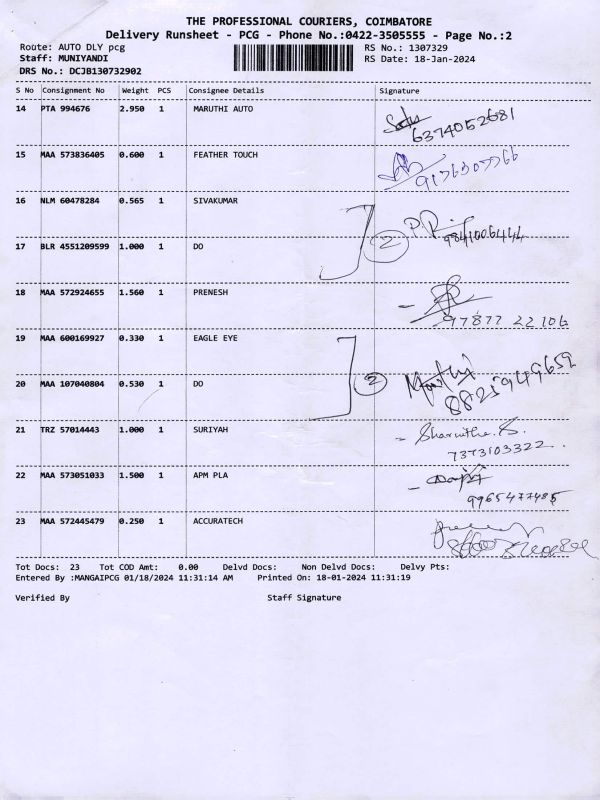 THE PROFESSIONAL COURIERS, COIMBATORE
Delivery Runsheet - PCG - Phone No.:0422-3505555 - Page No.:2
Route: AUTO DLY pcg RS No.: 1307329
Staff: MUNIYANDI RS Date: 18-Jan-2024
DRS No.: DCJB130732902
S No Consignment No Weight PCS Consignee Details Signature
14 PTA 994676 2.950 1 MARUTHI AUTO
6374052681
15 MAA 573836405 0.600 1 FEATHER TOUCH
9176507766
16 NLM 60478284 0.565 1 SIVAKUMAR
2 9841006444
17 BLR 4551209599 1.000 1 DO
18 MAA 572924655 1.560 1 PRENESH
97877 22106
19 MAA 600169927 0.330 1 EAGLE EYE
2
20 MAA 107040804 0.530 1 DO
8825949659
21 TRZ 57014443 1.000 1 SURIYAH
7373103322
22 MAA 573051033 1.500 1 APM PLA
9965477485
23 MAA 572445479 0.250 1 ACCURATECH
Tot Docs: 23 Tot COD Amt: 0.00 Delvd Docs: Non Delvd Docs: Delvy Pts:
Entered By :MANGAIPCG 01/18/2024 11:31:14 AM Printed On: 18-01-2024 11:31:19
Verified By Staff Signature